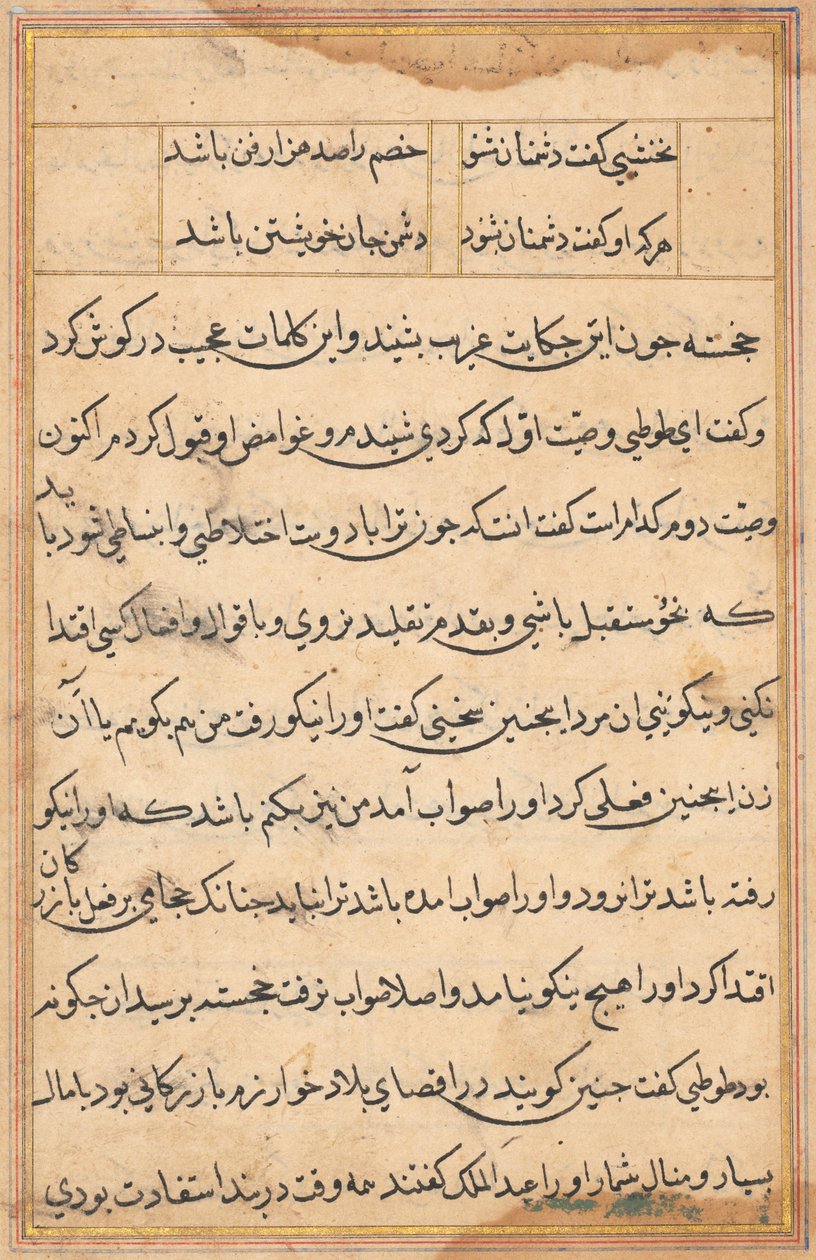 نخشبی کفت دشمنان مشنو خصم را صد هزار فن باشد
هرکه او کفت دشمنان بشنود دشمن جان خویشتن باشد
خجسته جون این حکایت غریب بشنید و این کلمات عجیب در کوش کرد
و کفت ای طوطی وصیّت اوّل که کردی شنیدم و غوامض او قبول کردم اکنون
وصیّت دوم کدام است کفت انست که جون ترا با دوست اختلاطی و انبساطی شود باید
که نحو مستقبل باشی و بقدم تقلید نروی و با قوال و افعال کسی اقتدا
نکنی و نیکو بینی ان مرد اینجنین سخنی کفت او را نیکو رفت من هم بکویم یا آن
زن اینجنین فعلی کرد او را صواب آمد من نیز بکنم باشد که او را نیکو
رفته باشد ترا نرود و او را صواب امده باشد ترا نیاید جنانک حجامی بر فعل بازرکان
اقتدا کرد او را هیچ نیکو نیامد و اصلا صواب نرفت خجسته برسید ان جکونه
بود طوطی کفت جنین کویند در اقصای بلاد خوارزم بازرکانی بود با مال
بسیار و منال شمار او را عبد الملک کفتند همه وقت در بند استفادت بودی